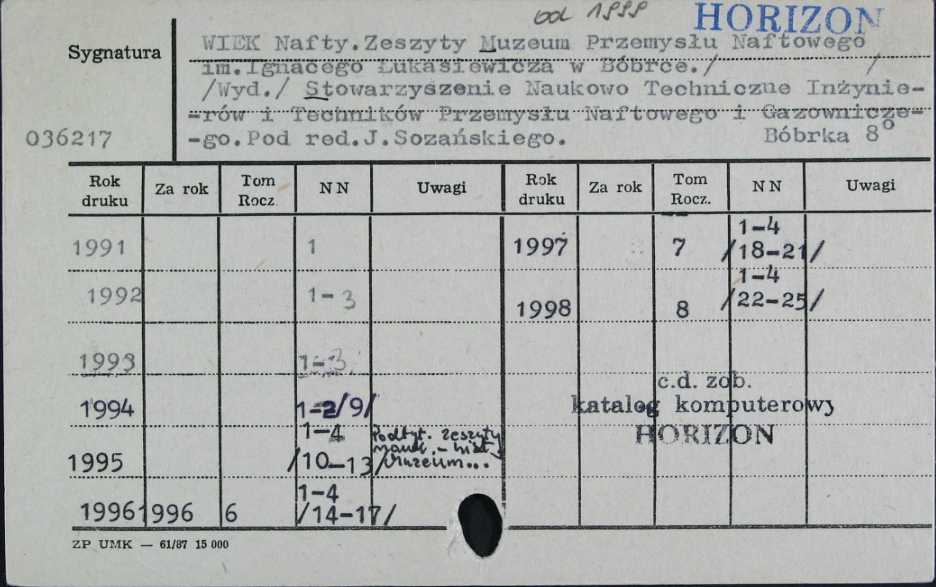 od 1999 HORIZON
Sygnatura
WIEK Nafty.Zeszyty Muzeum Przemysłu Naftowego
im.Ignacego Łukasiewicza w Bóbrce./ /
/Wyd./ Stowarzyszenie Naukowo Techniczne Inżynie-
-rów i Techników Przemysłu Naftowego i Gazownicze-
036217 -go.Pod red.J.Sozańskiego. Bóbrka 8°
Rok druku Za rok Tom Rocz. NN Uwagi Rok druku Za rok Tom Rocz. NN Uwagi
1991 1 1997 7 1-4 /18-21/
1992 1-3 1998 8 1-4 /22-25/
1993 1-3
c.d. zob.
1994 1-2/9/ katalog komputerowy
HORIZON
1995 1-4 /10-13/ Podtyt. Zeszyty nauk.-hist. Muzeum...
1996 1996 6 1-4 /14-17/
ZP UMK — 61/87 15 000